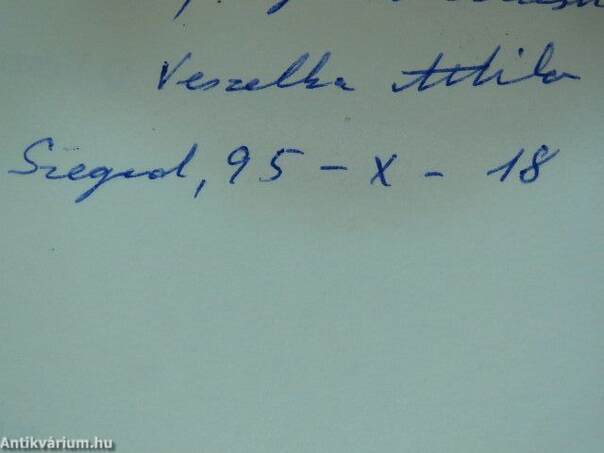 Veszelka Attila
Szeged, 95 - X - 18
Antikvárium.hu